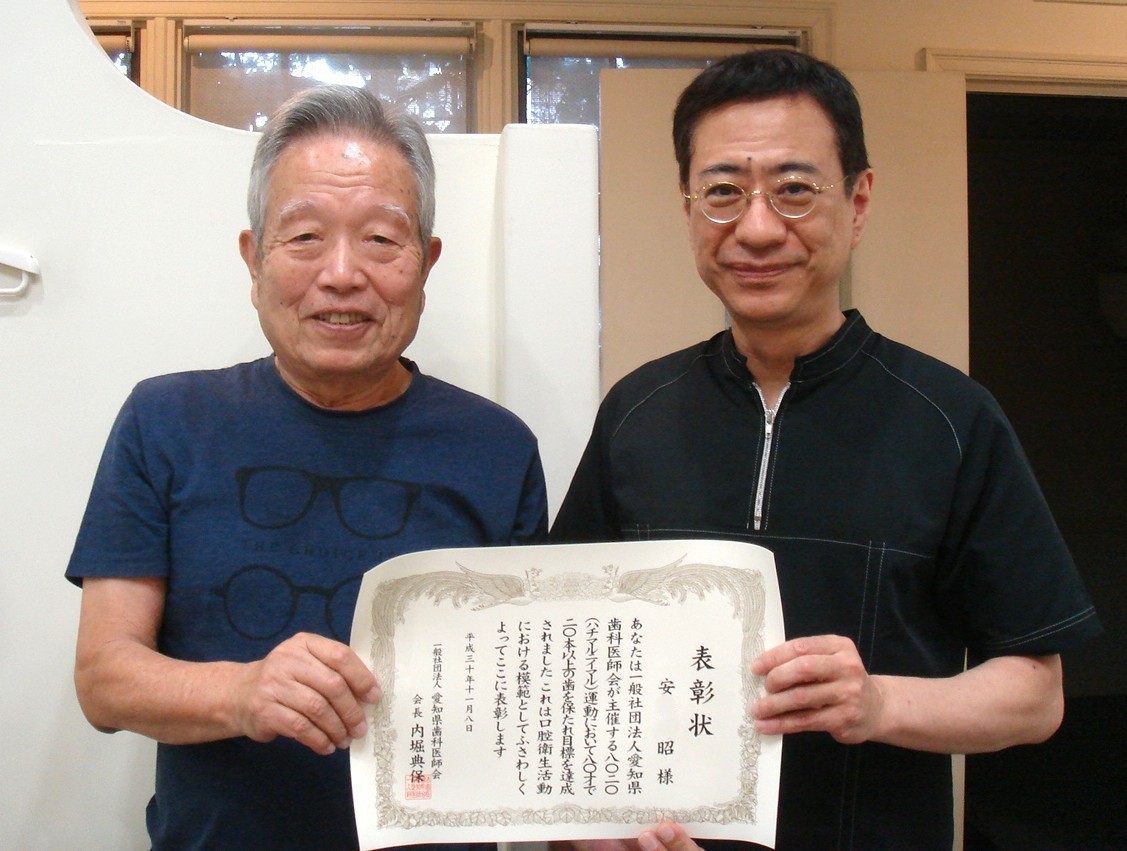 THE CHOICE
表彰状
安 昭 様
あなたは一般社団法人愛知県
歯科医師会が主催する八〇二〇
(ハチマルニイマル)運動において八〇才で
二〇本以上の歯を保たれ目標を達成
されました これは口腔衛生活動
における模範としてふさわしく
よってここに表彰します
平成三十年十一月八日
一般社団法人 愛知県歯科医師会
会長 内堀典保